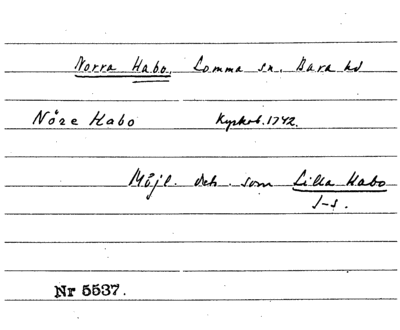 Norra Habo, Lomma sn, Bara hd
Nöre Habo Kyrkob. 1742.
Möjl. dets. som Lilla Habo
s-s.
Nr 5537.